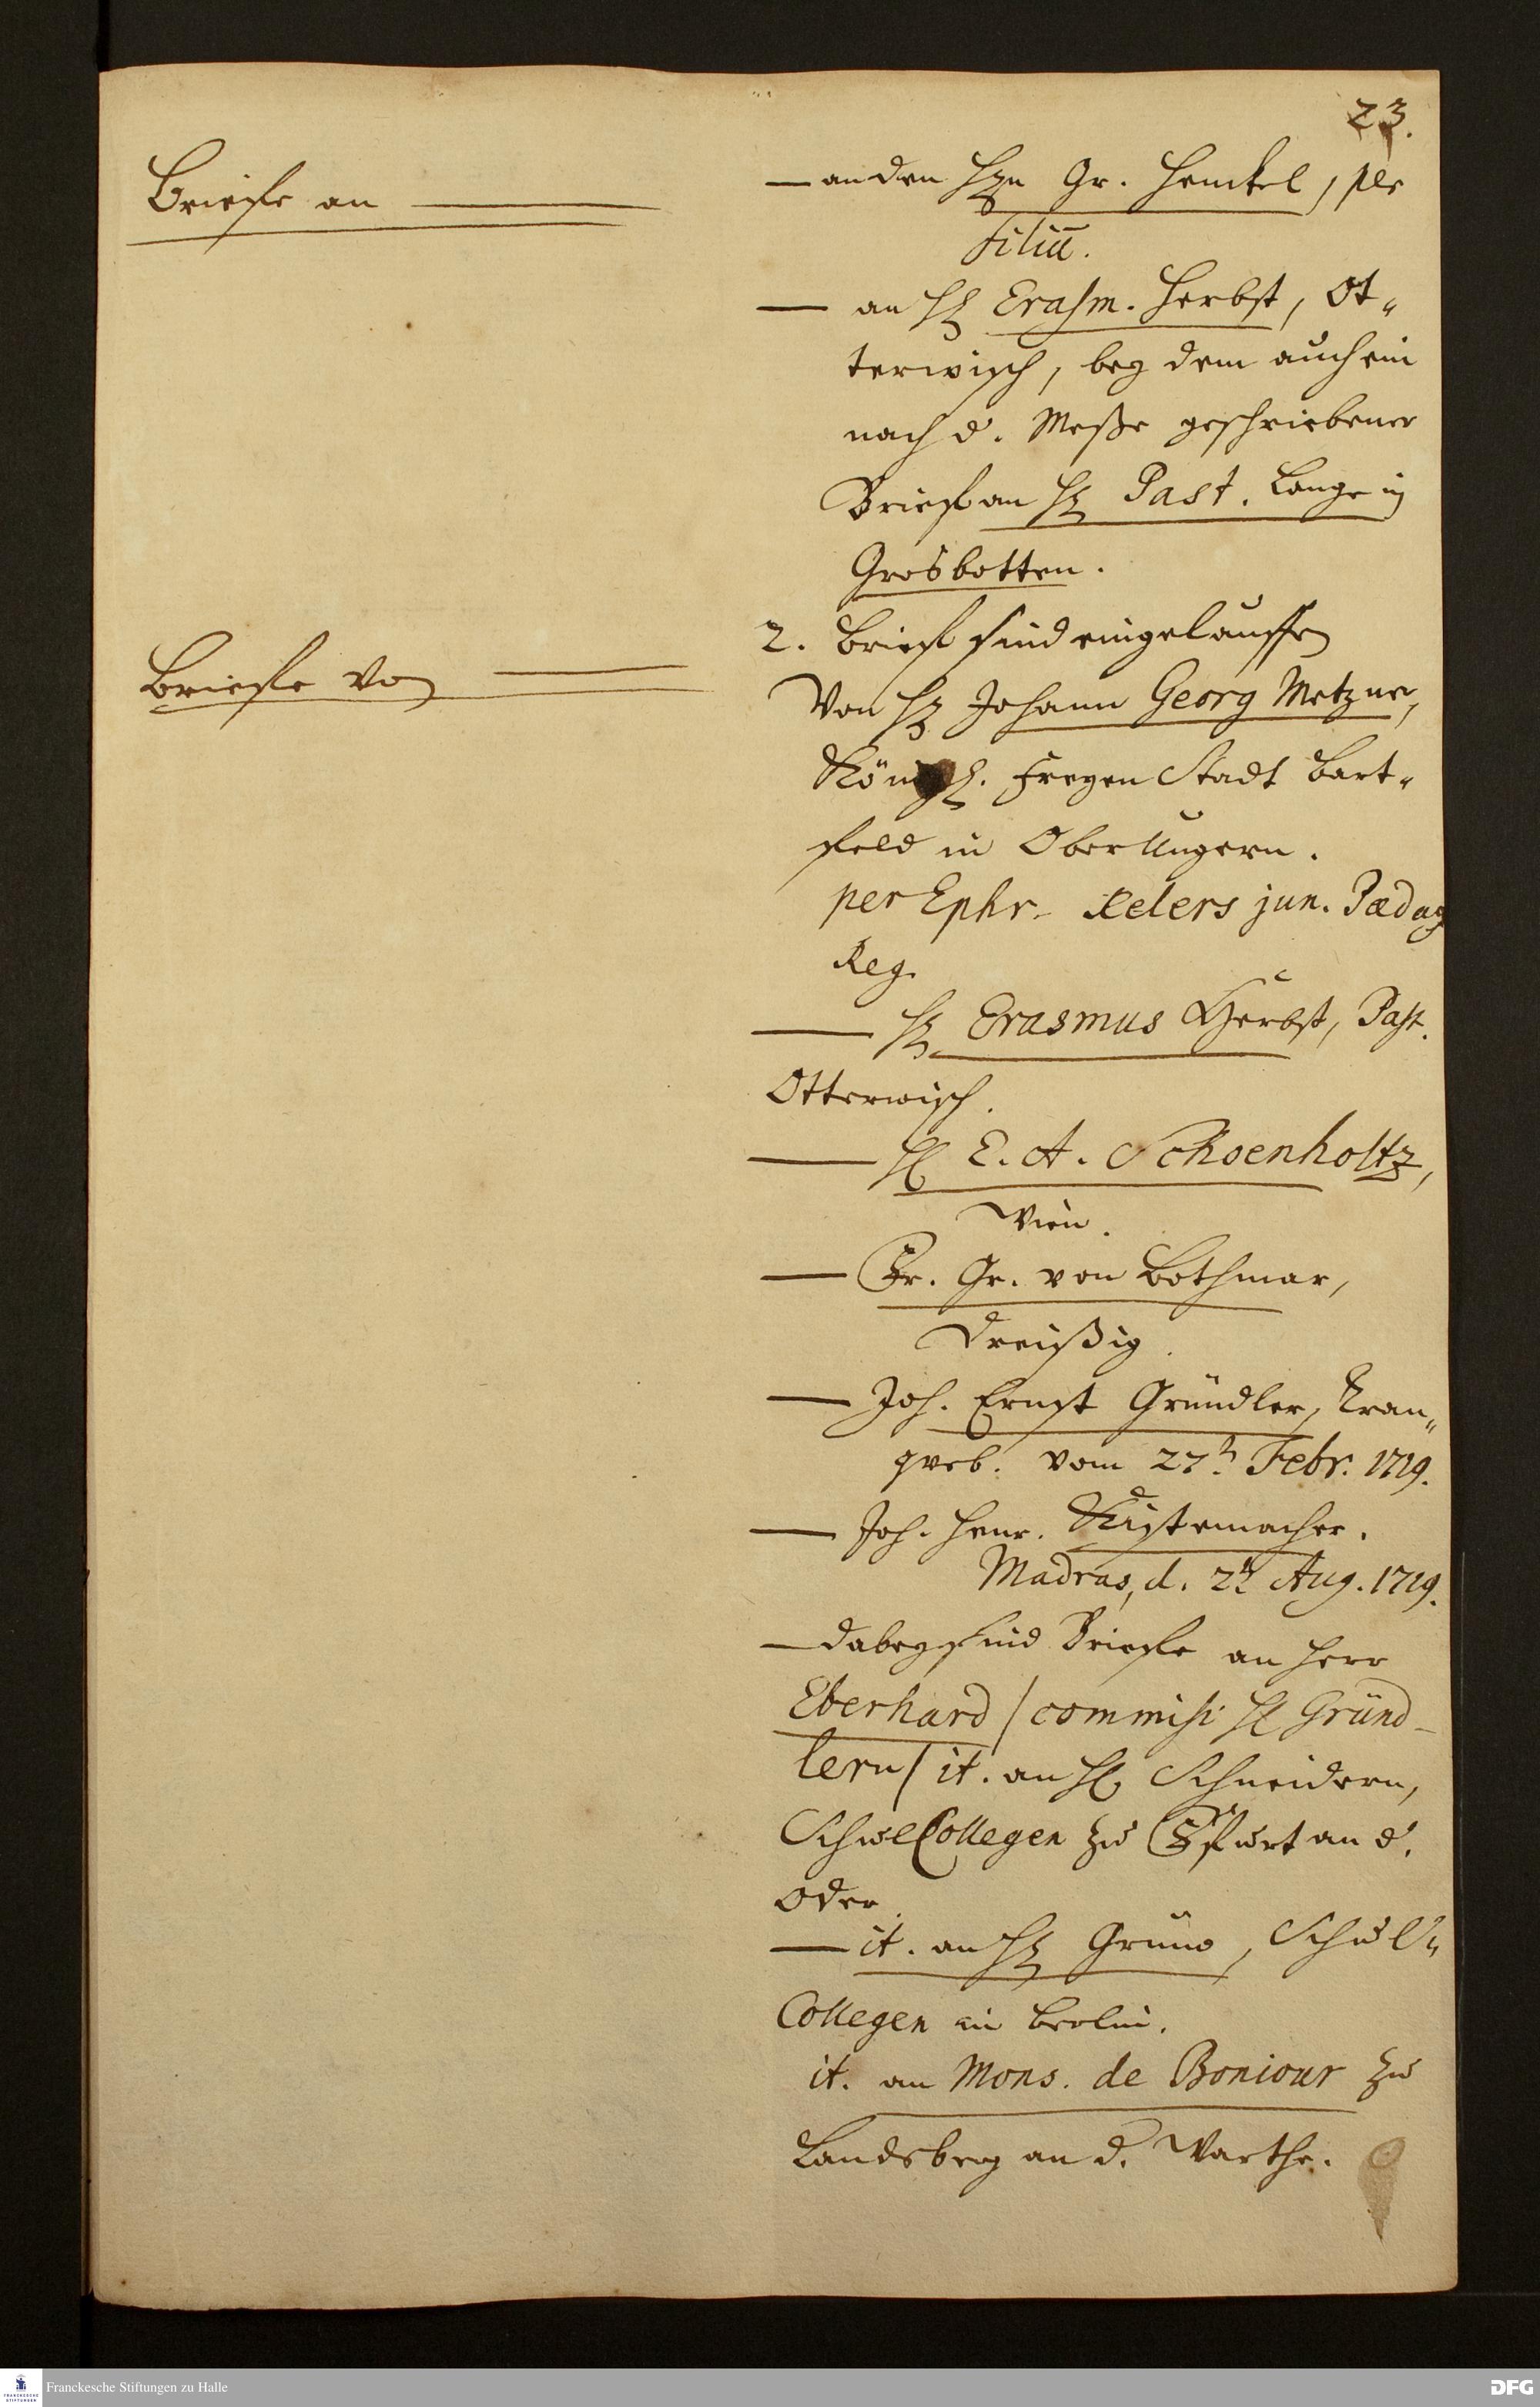 23.
Briefe an
— an den Hrn Gr. Henckel, per
filiū.
— an H. Erasm. Herbst, Ot-
terwisch, bey dem auch ein
nach d. Messe geschriebener
Brief an H. Past. Lange in
Grosbotten.
Briefe von
2. Brief sind eingelauffen
Von H. Johann Georg Metzner,
Königl. Freyen Stadt Bart-
feld in Ober Ungern.
per Ephr. jun. Pædag
Reg.
— H. Erasmus Herbst, Past.
Otterwisch.
— H. E. A. Schoenholtz,
Wien.
— Fr. Gr. von Bothmar,
Dreißig.
— Joh. Ernst Gründler, Tran-
queb. vom 27t Febr. 1719.
— Joh. Henr. Kistemacher.
Madras, d. 2t Aug. 1719.
— dabey sind Briefe an Herr
Eberhard / commisi H. Gründ-
lern / it. an H. Schneidern,
Schul Collegen zu Fr. furt an d.
Oder.
— it. an H. Grüno, Schul-
Collegen in Berlin.
it. an Mons. de Boniour zu
Landsberg an d. Warthe.
Franckesche Stiftungen zu Halle
DFG